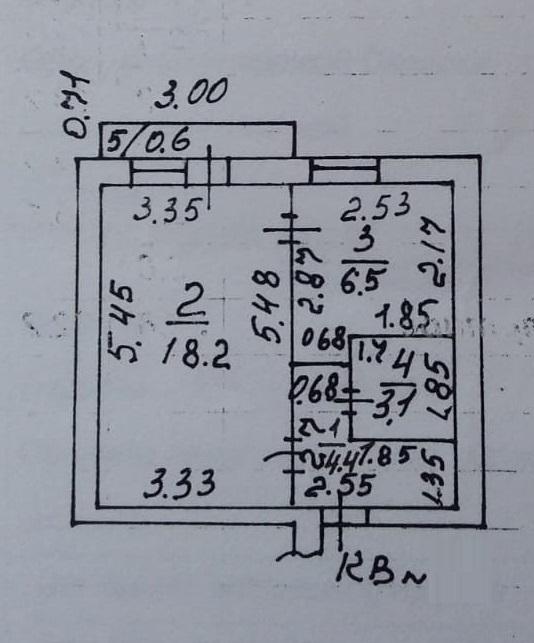 3.00
0.71
5/0.6
3.35
2.53
3
6.5
2.17
2.87
5.48
5.45
2
18.2
1.85
068
1.7
4
3.1
1.85
0.68
1
4.4
1.85
2.55
1.35
3.33
КВ